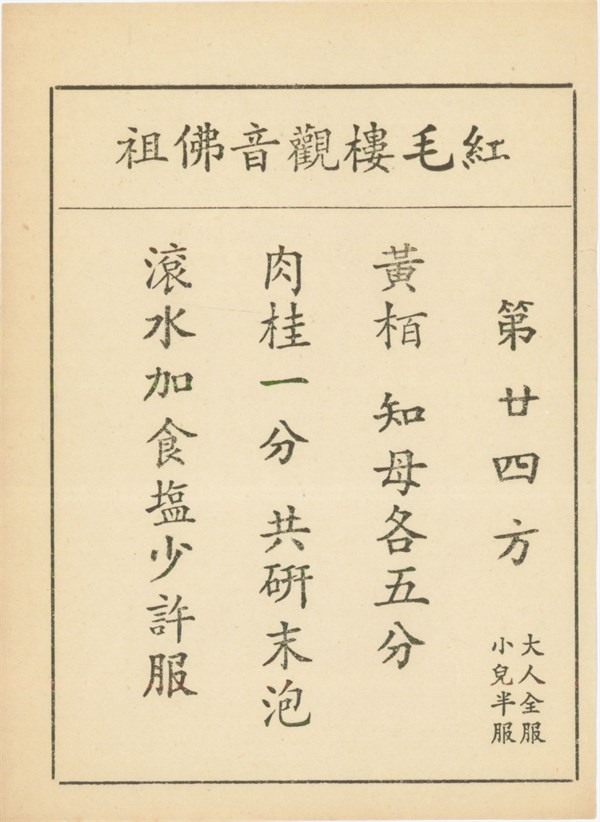 紅毛樓觀音佛祖
第廿四方
大人全服
小兒半服
黃栢 知母各五分
肉桂一分 共研末泡
滾水加食塩少許服